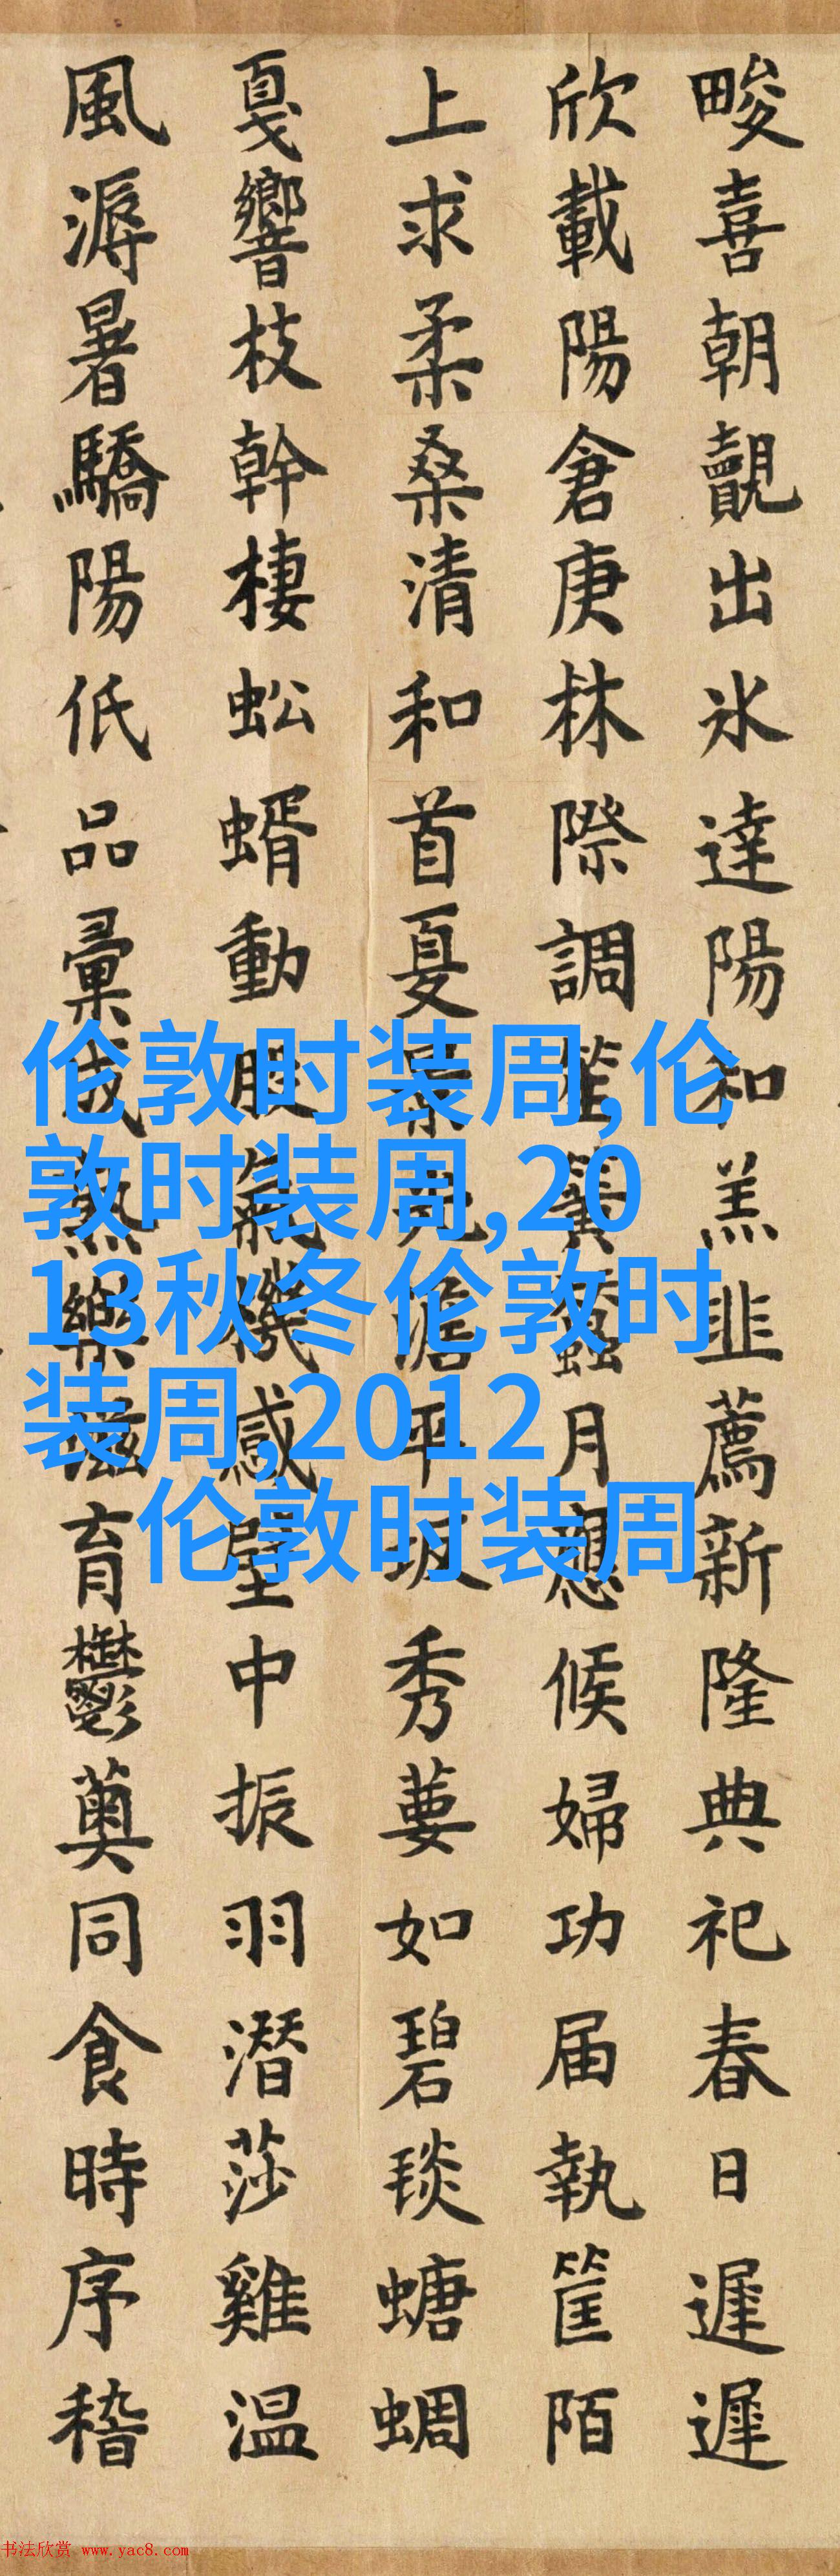 畯喜朝覿出冰達陽和羔韭薦新隆典祀春日遲遲
欣載陽倉庚林際調笙簧蠶月應候婦功届執筐陌
上求柔桑清和首夏景平坂秀葽如碧琰螗蜩
戛響枝幹棲蚣蝑動股氣機感壁中振羽潛莎雞温
風溽暑驕陽低品彙熟樂滋育鬱薁同食時序稽
伦敦时装周,伦
敦时装周,20
13秋冬伦敦时
装周,2012
伦敦时装周
书法欣赏 www.yac8.com